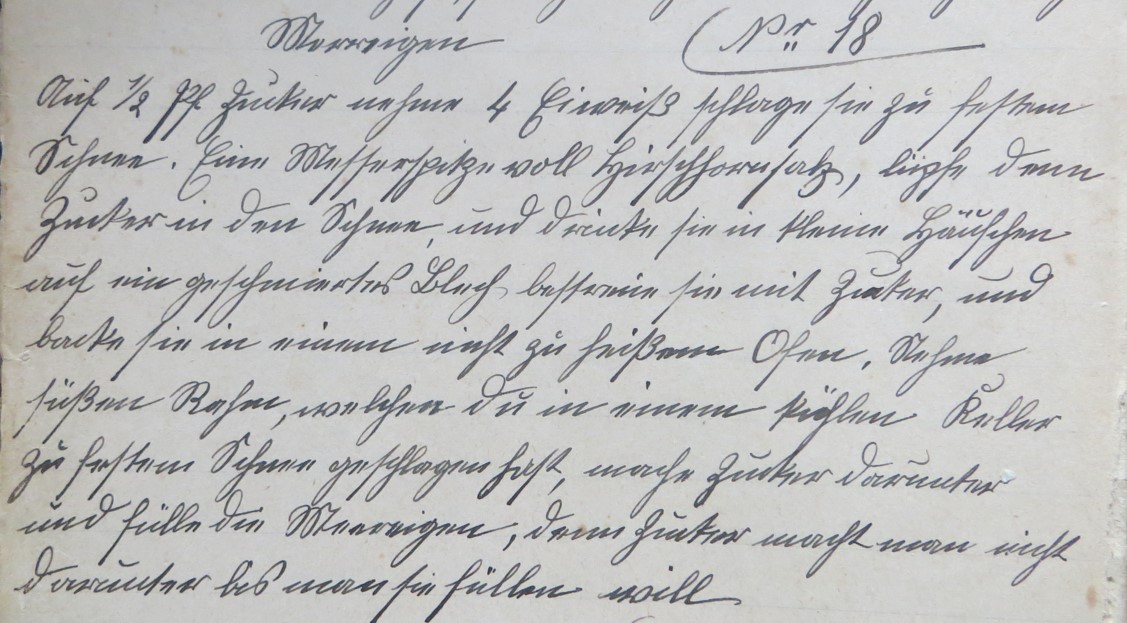 Merreigen (Nr 18
Auf 1/2 Pf Zucker nehme 4 Eiweiß schlage sie zu festem
Schnee. Eine Messerspitze voll Hirschhornsalz, lüpfe denn
Zucker in den Schnee, und drücke sie in kleine Häufchen
auf ein geschmiertes Blech bestreue sie mit Zucker, und
backe sie in einem nicht zu heißem Ofen. Nehme
süßen Rahm, welchen du in einem kühlen Keller
zu festem Schnee geschlagen hast, mache Zucker darunter
und fülle die Meereigen, denn Zucker macht man nicht
darunter bis man sie füllen will